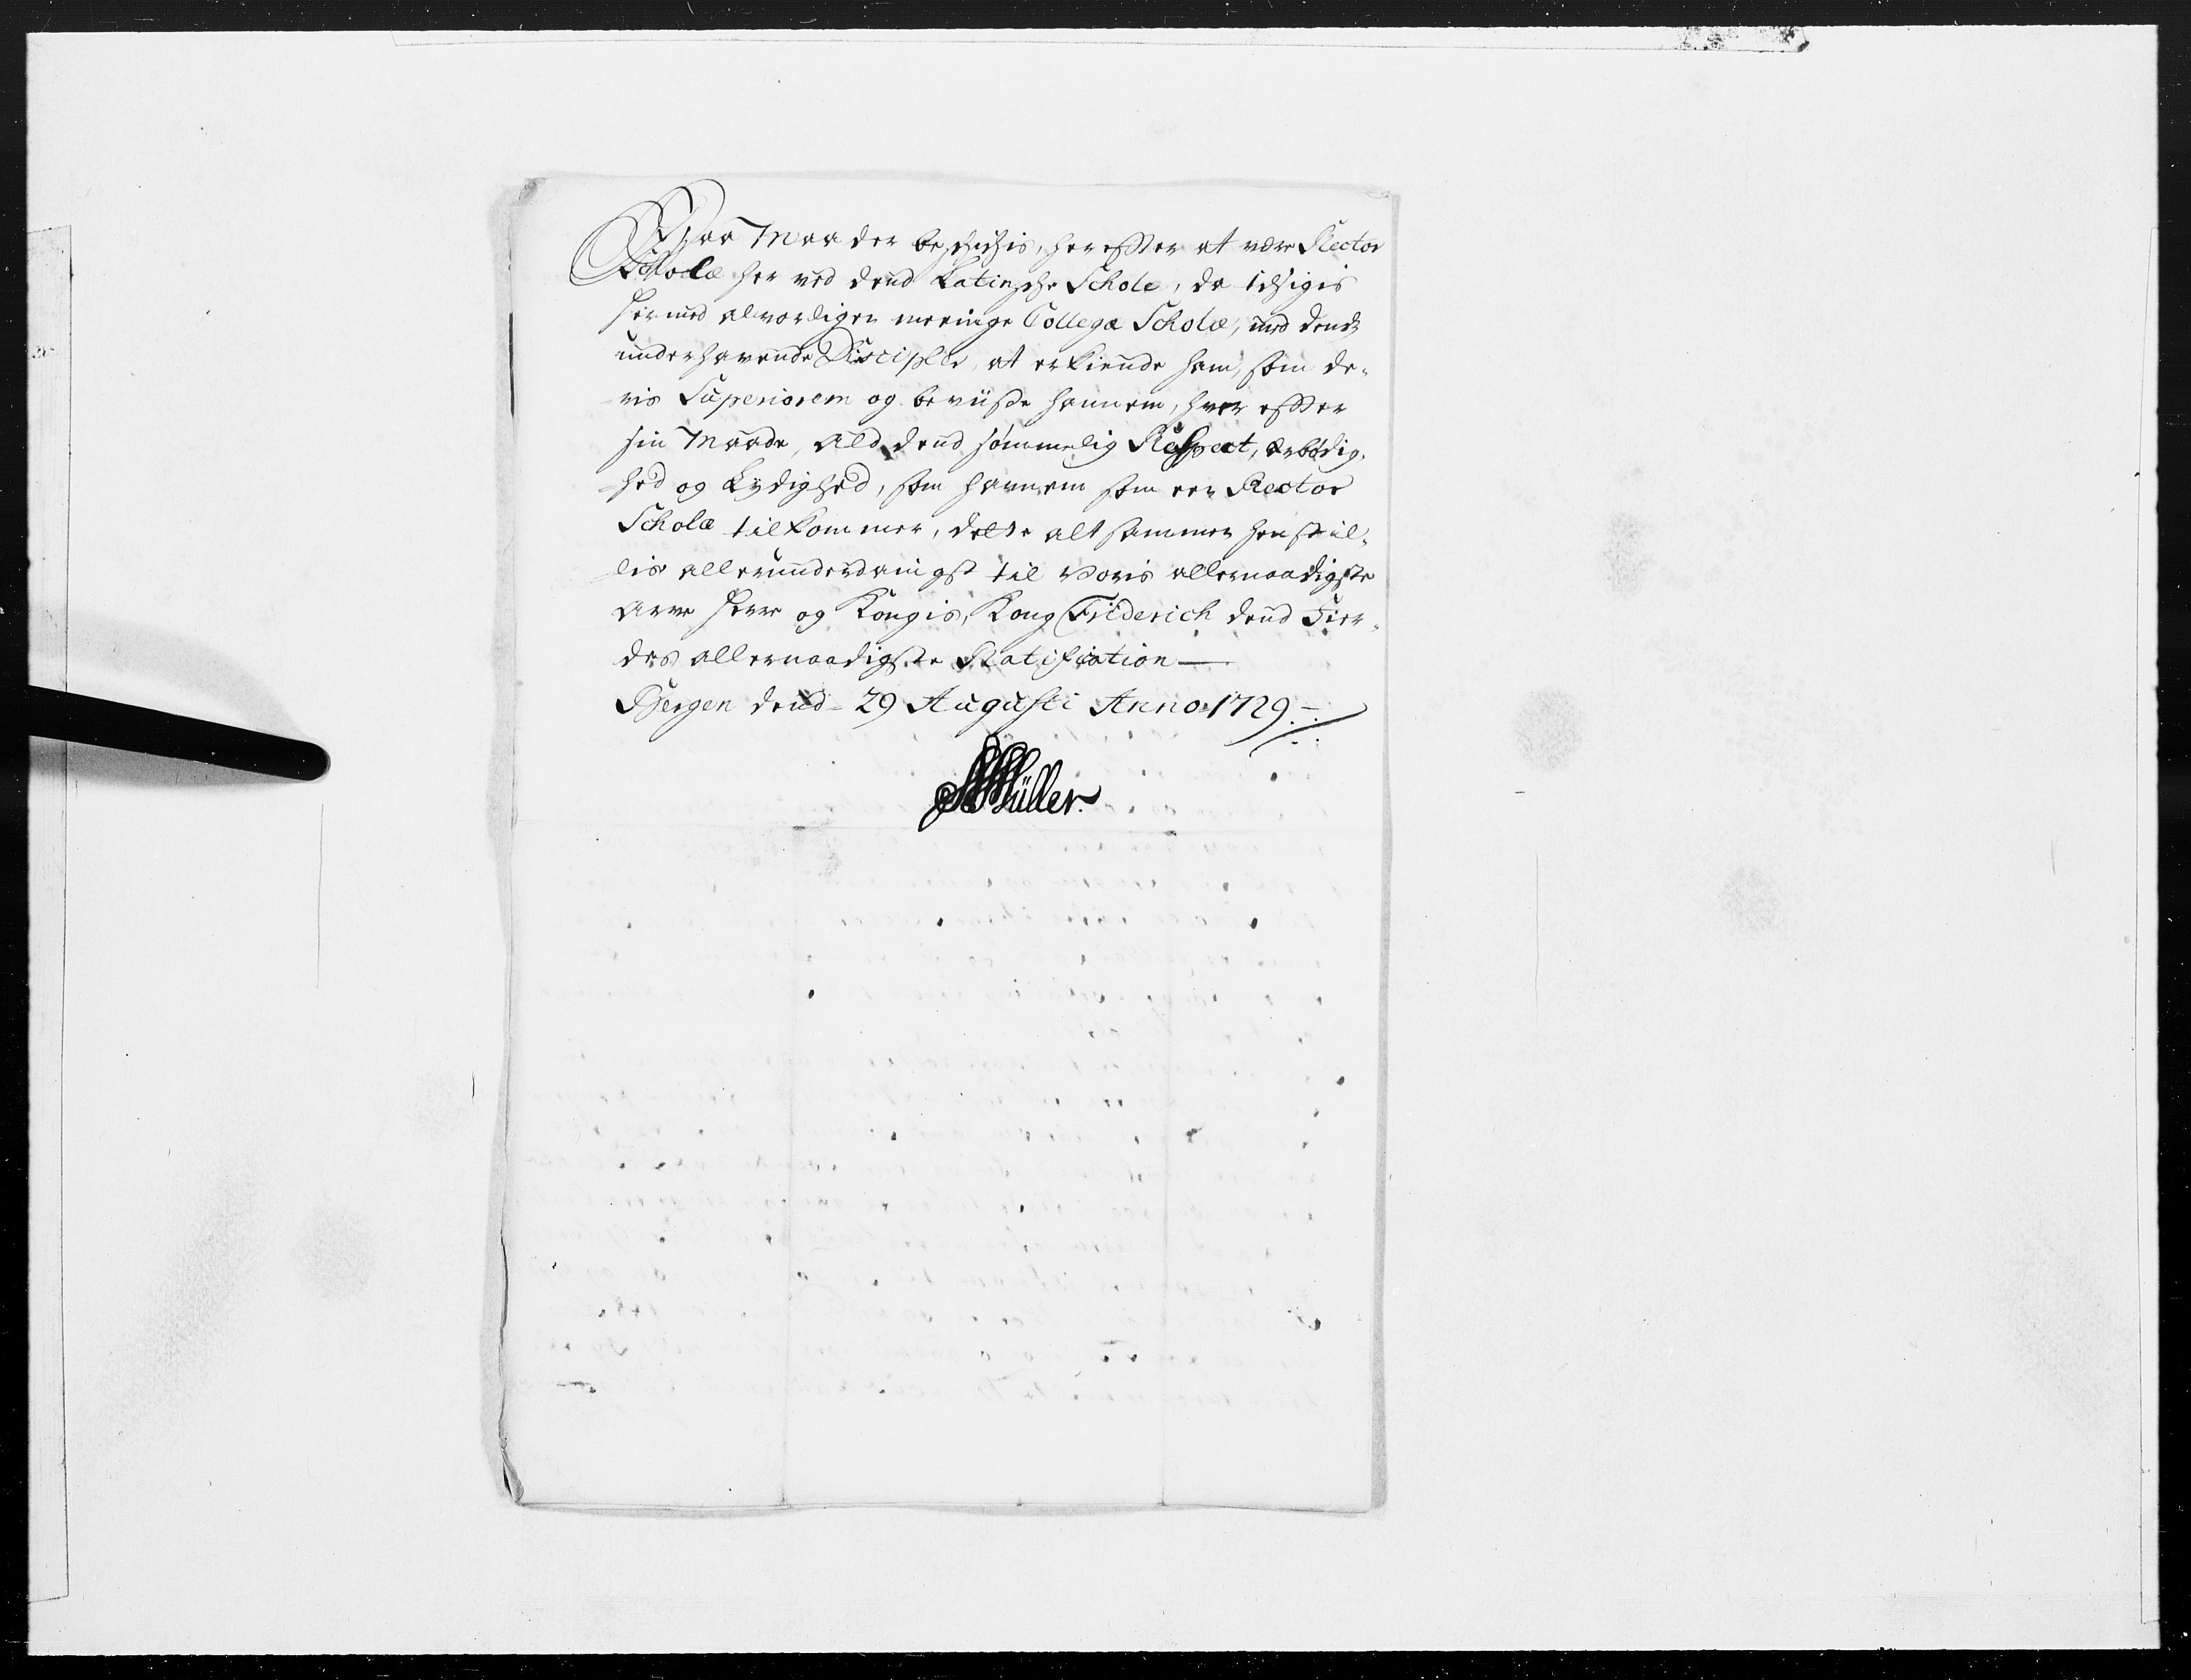 Paa Maader beschichis, herefter at være Rector
Scholæ her ved dend Latinsche Schole, da
hermed alvorligen meenige Collegæ Scholæ, med dend
underhavende Disciple, at erkiende ham, som de-
ris Superiorem og beviise hannem, hver efter
sin Maade, Ald dend sømmelig Respect, ærbødig-
hed og Lydighed, som hannem som een Rector
Scholæ tilkommer, dette alt sammen henstil-
lis allerunderdanigst til Voris allernaadigste
Arve Herre og Kongis, Kong Friderich dend Fier-
des allernaadigste Ratification —
Bergen dend 29 Augusti Anno 1729.
Müller